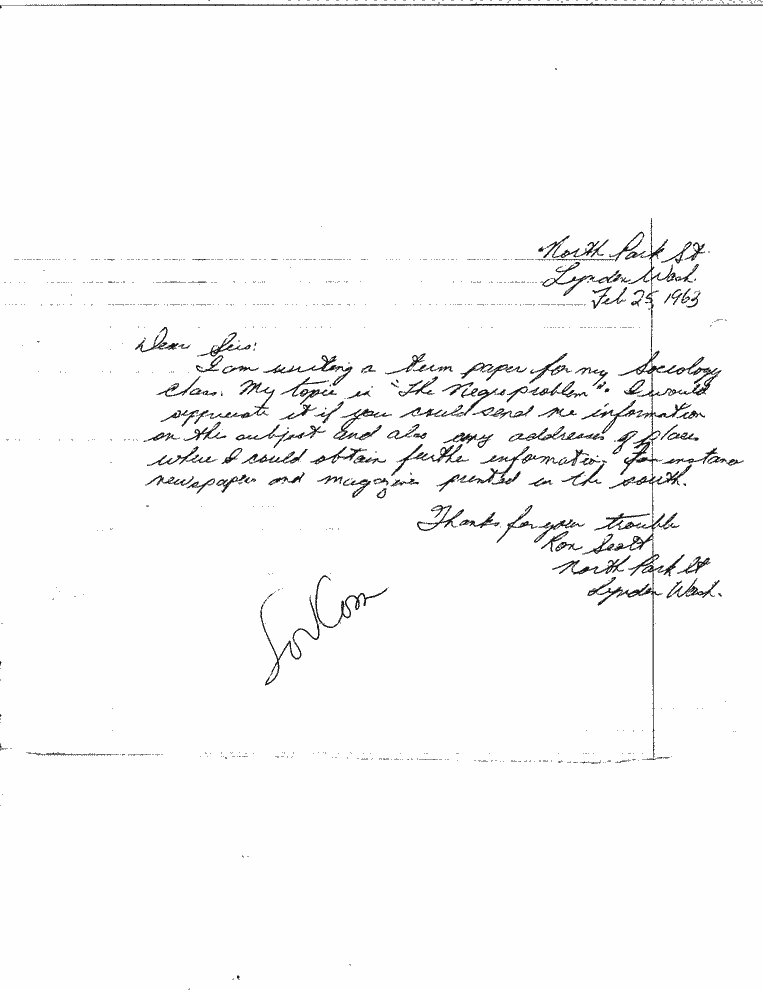 North Park St.
Lynden Wash.
Feb 25, 1963
Dear Sirs:
I am writing a term paper for my Sociology
class. My topic is "The Negro problem". I would
appreciate it if you could send me information
on the subject and also any addresses of places
where I could obtain further information, for instance
newspapers and magazines printed in the south.
Thanks for your trouble
Ron Scott
North Park St
Lynden Wash.
SovCom